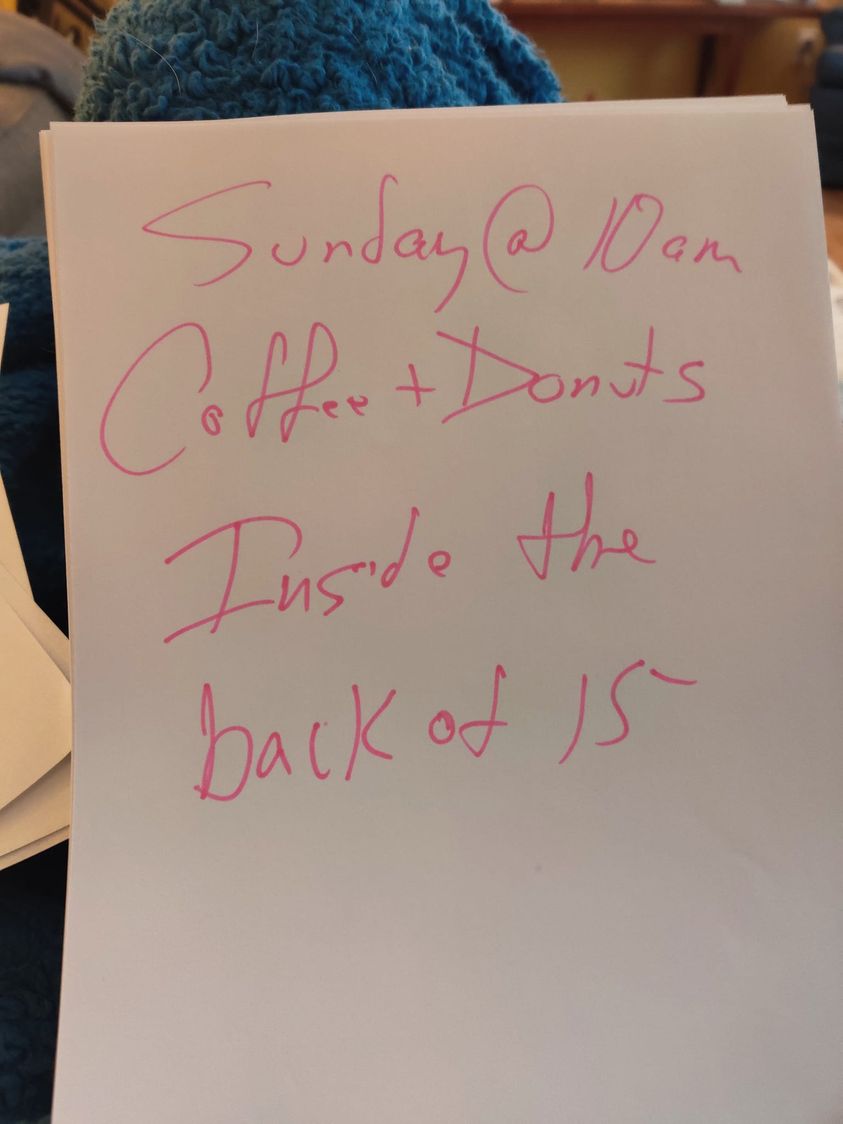 Sunday @ 10am
Coffee + Donuts
Inside the
back of 15